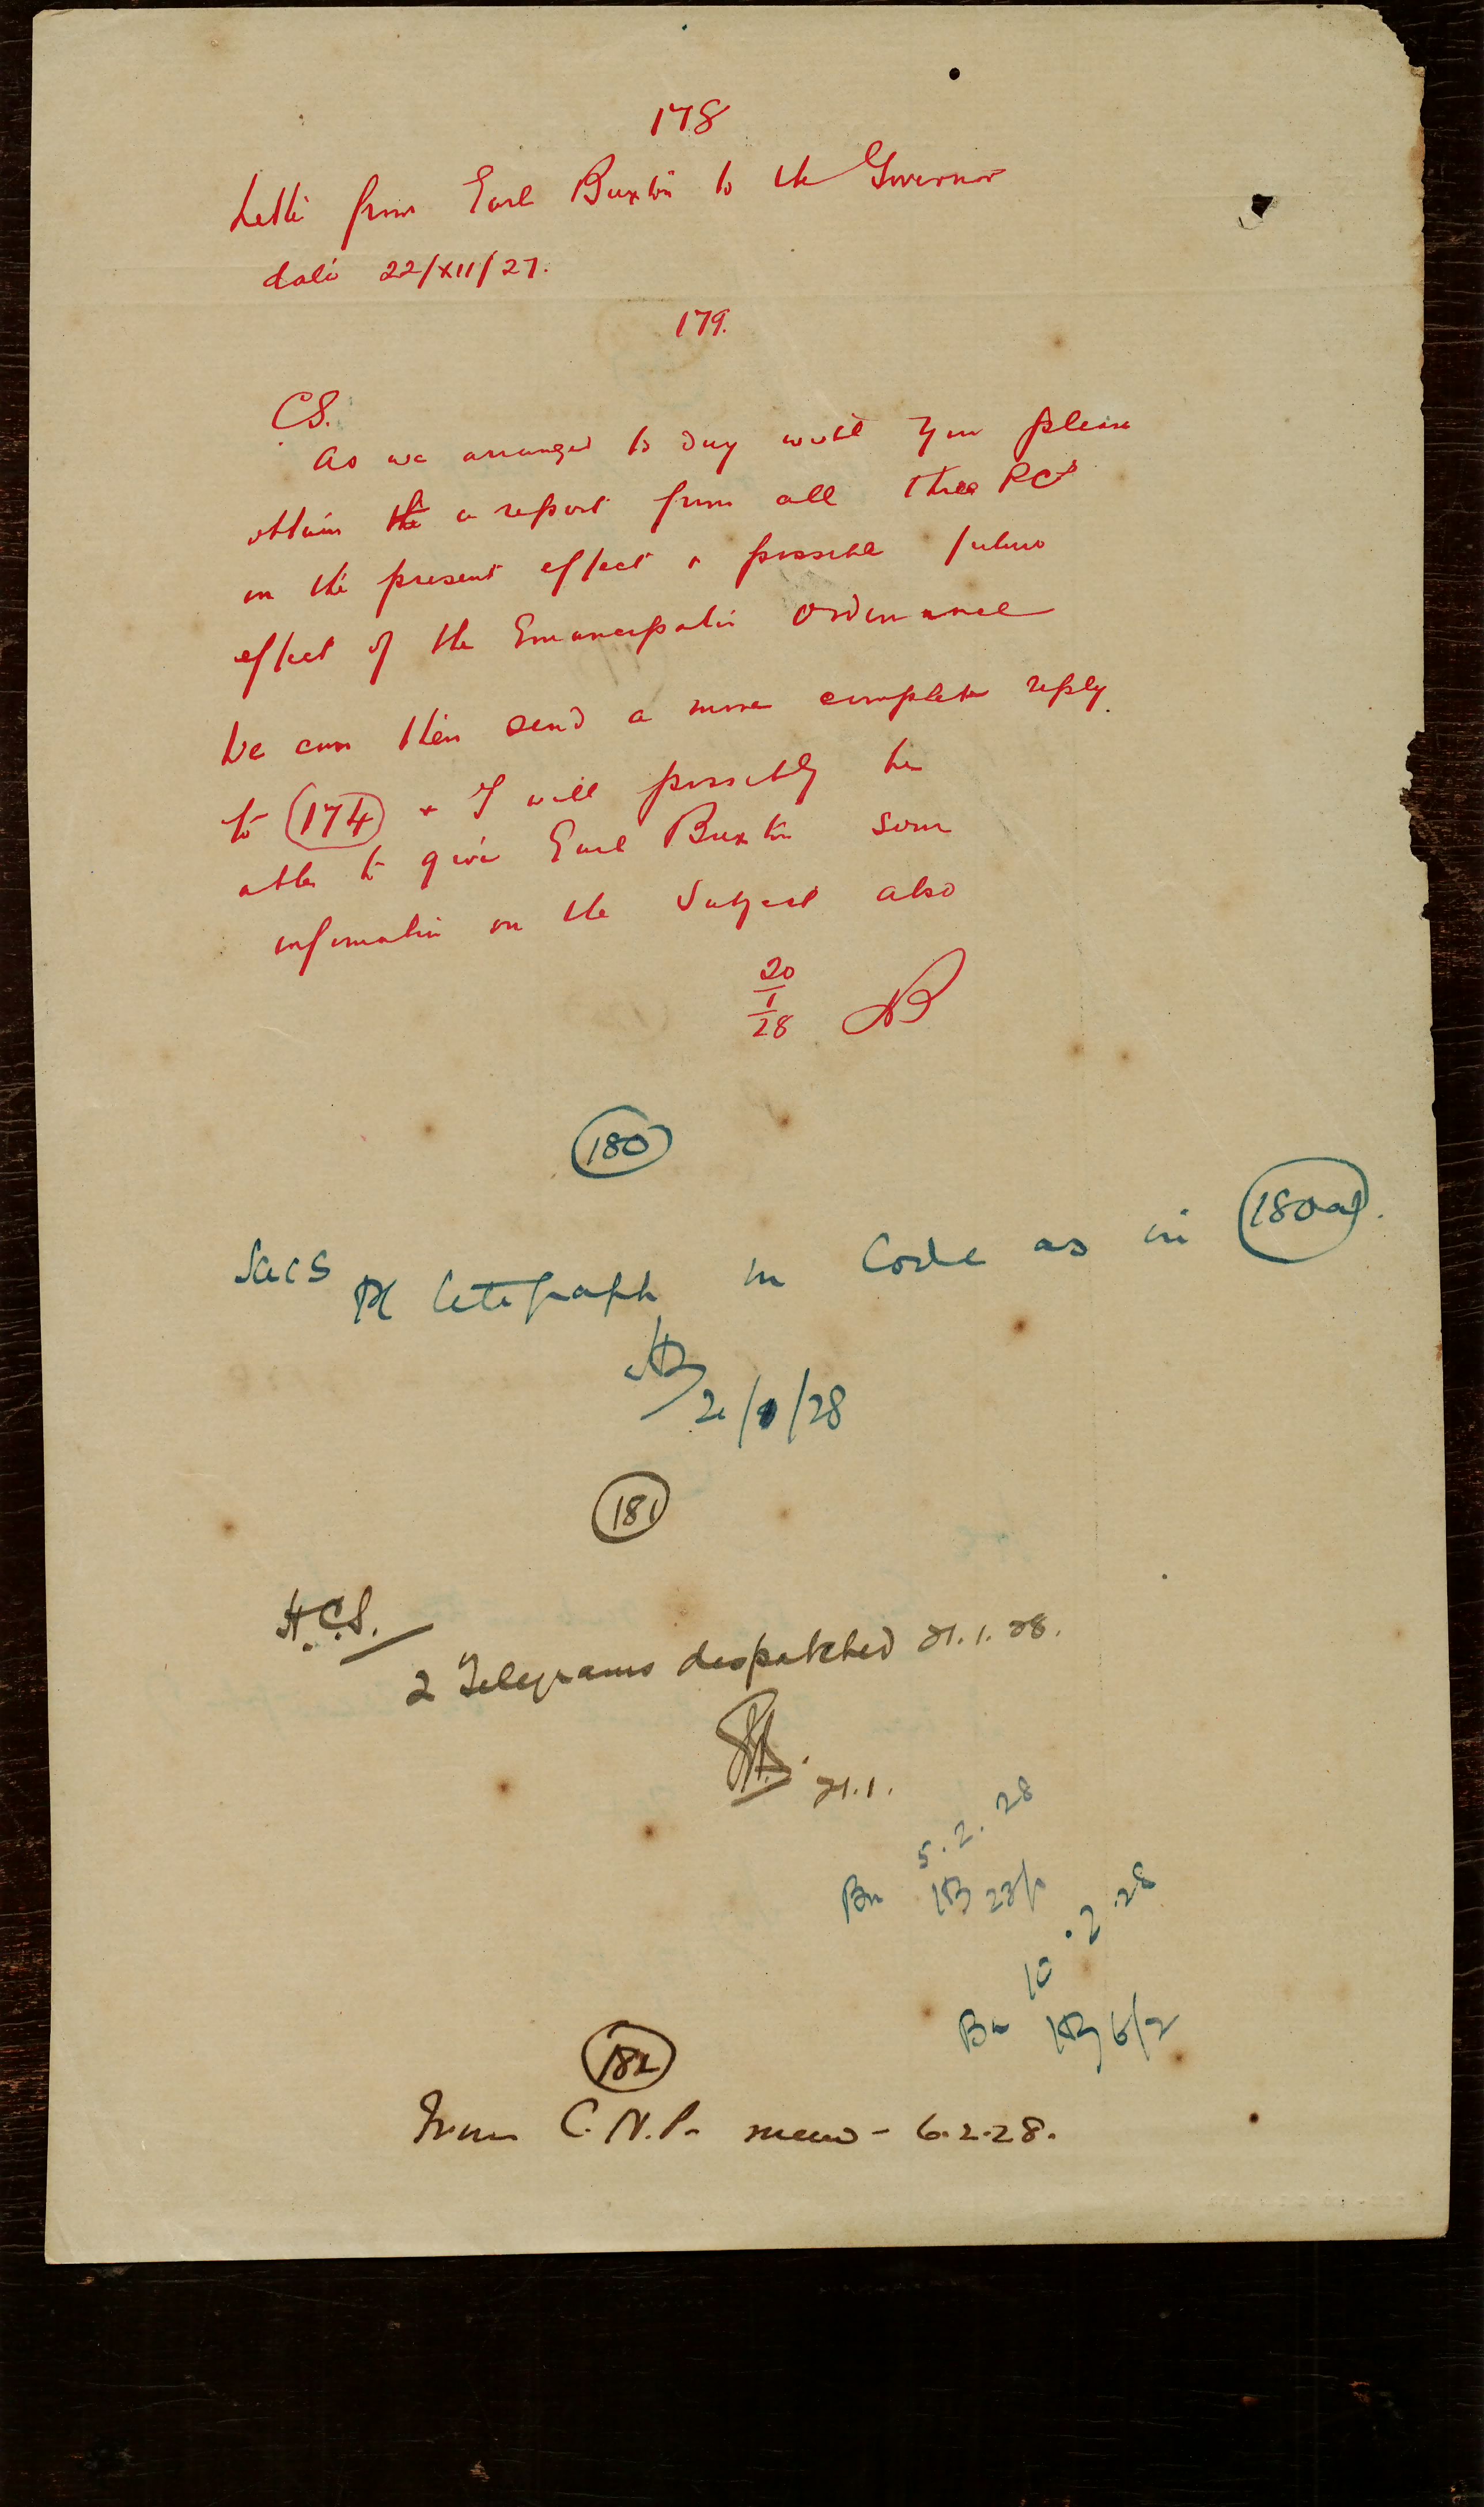 178
Letter from Earl Buxton to the Governor
date 22/XII/27.
179.
CS.
As we arranged to day will you please
obtain the a report from all three PCs
on the present effect & possible future
effect of the Emancipation Ordinance
We can then send a more complete reply
to 174 & I will possibly be
able to give Earl Buxton some
information on the subject also
20/1/28
180
Pl telegraph in Code as in 180a.
/28
181
H.C.S.
2 Telegrams despatched 21.1.28.
21.1.
5.2.28
Bu HB 23/1
10.2.28
Bu HB 6/2
182
From C.N.P. memo - 6.2.28.